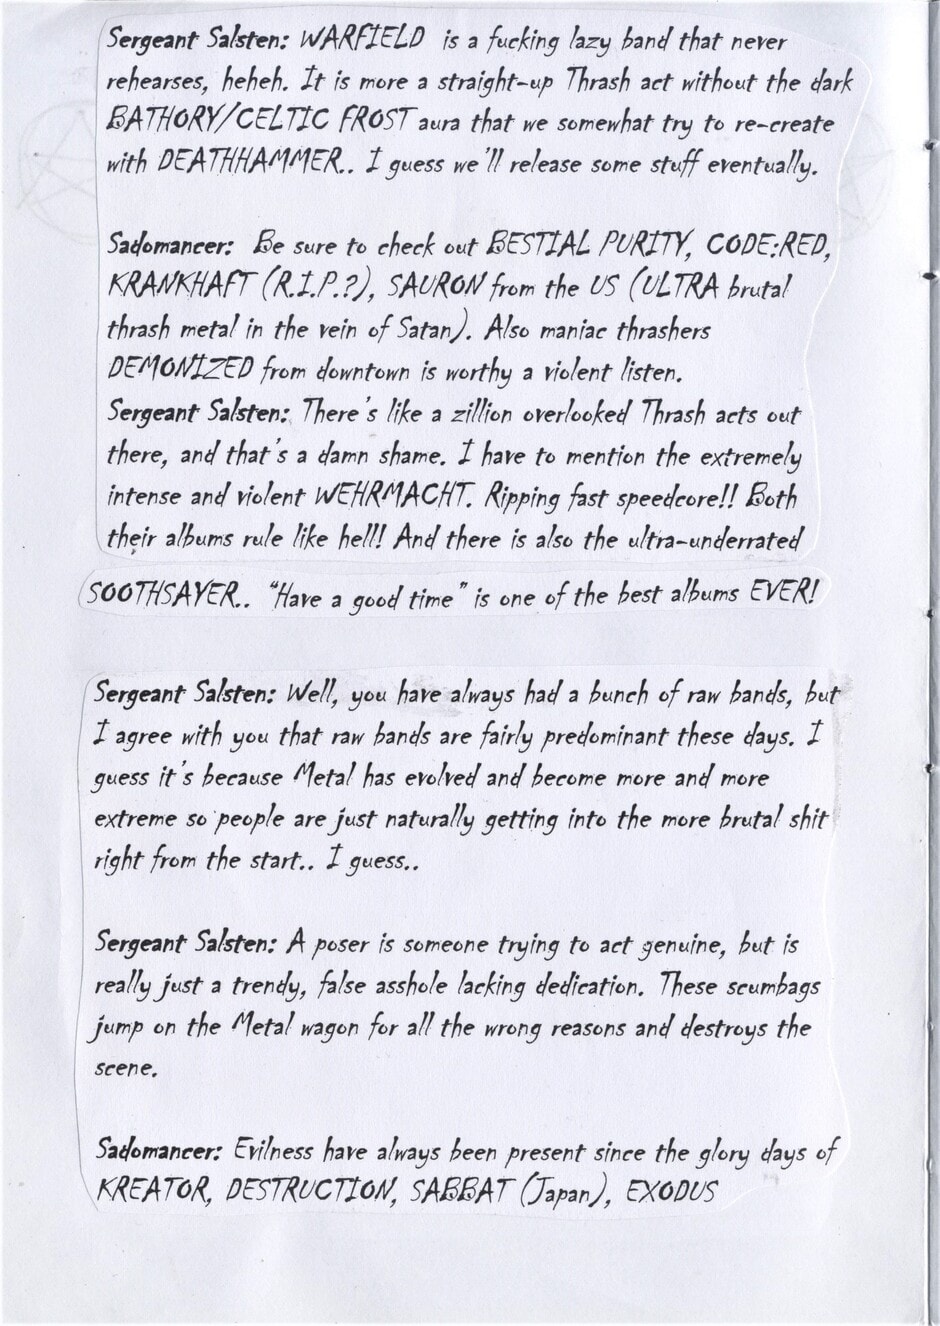 Sergeant Salsten: WARFIELD is a fucking lazy band that never
rehearses, heheh. It is more a straight-up Thrash act without the dark
BATHORY/CELTIC FROST aura that we somewhat try to re-create
with DEATHHAMMER.. I guess we'll release some stuff eventually.
Sadomancer: Be sure to check out BESTIAL PURITY, CODE:RED,
KRANKHAFT (R.I.P.?), SAURON from the US (ULTRA brutal
thrash metal in the vein of Satan). Also maniac thrashers
DEMONIZED from downtown is worthy a violent listen.
Sergeant Salsten: There's like a zillion overlooked Thrash acts out
there, and that's a damn shame. I have to mention the extremely
intense and violent WEHRMACHT. Ripping fast speedcore!! Both
their albums rule like hell! And there is also the ultra-underrated
SOOTHSAYER.. "Have a good time" is one of the best albums EVER!
Sergeant Salsten: Well, you have always had a bunch of raw bands, but
I agree with you that raw bands are fairly predominant these days. I
guess it's because Metal has evolved and become more and more
extreme so people are just naturally getting into the more brutal shit
right from the start.. I guess..
Sergeant Salsten: A poser is someone trying to act genuine, but is
really just a trendy, false asshole lacking dedication. These scumbags
jump on the Metal wagon for all the wrong reasons and destroys the
scene.
Sadomancer: Evilness have always been present since the glory days of
KREATOR, DESTRUCTION, SABBAT (Japan), EXODUS